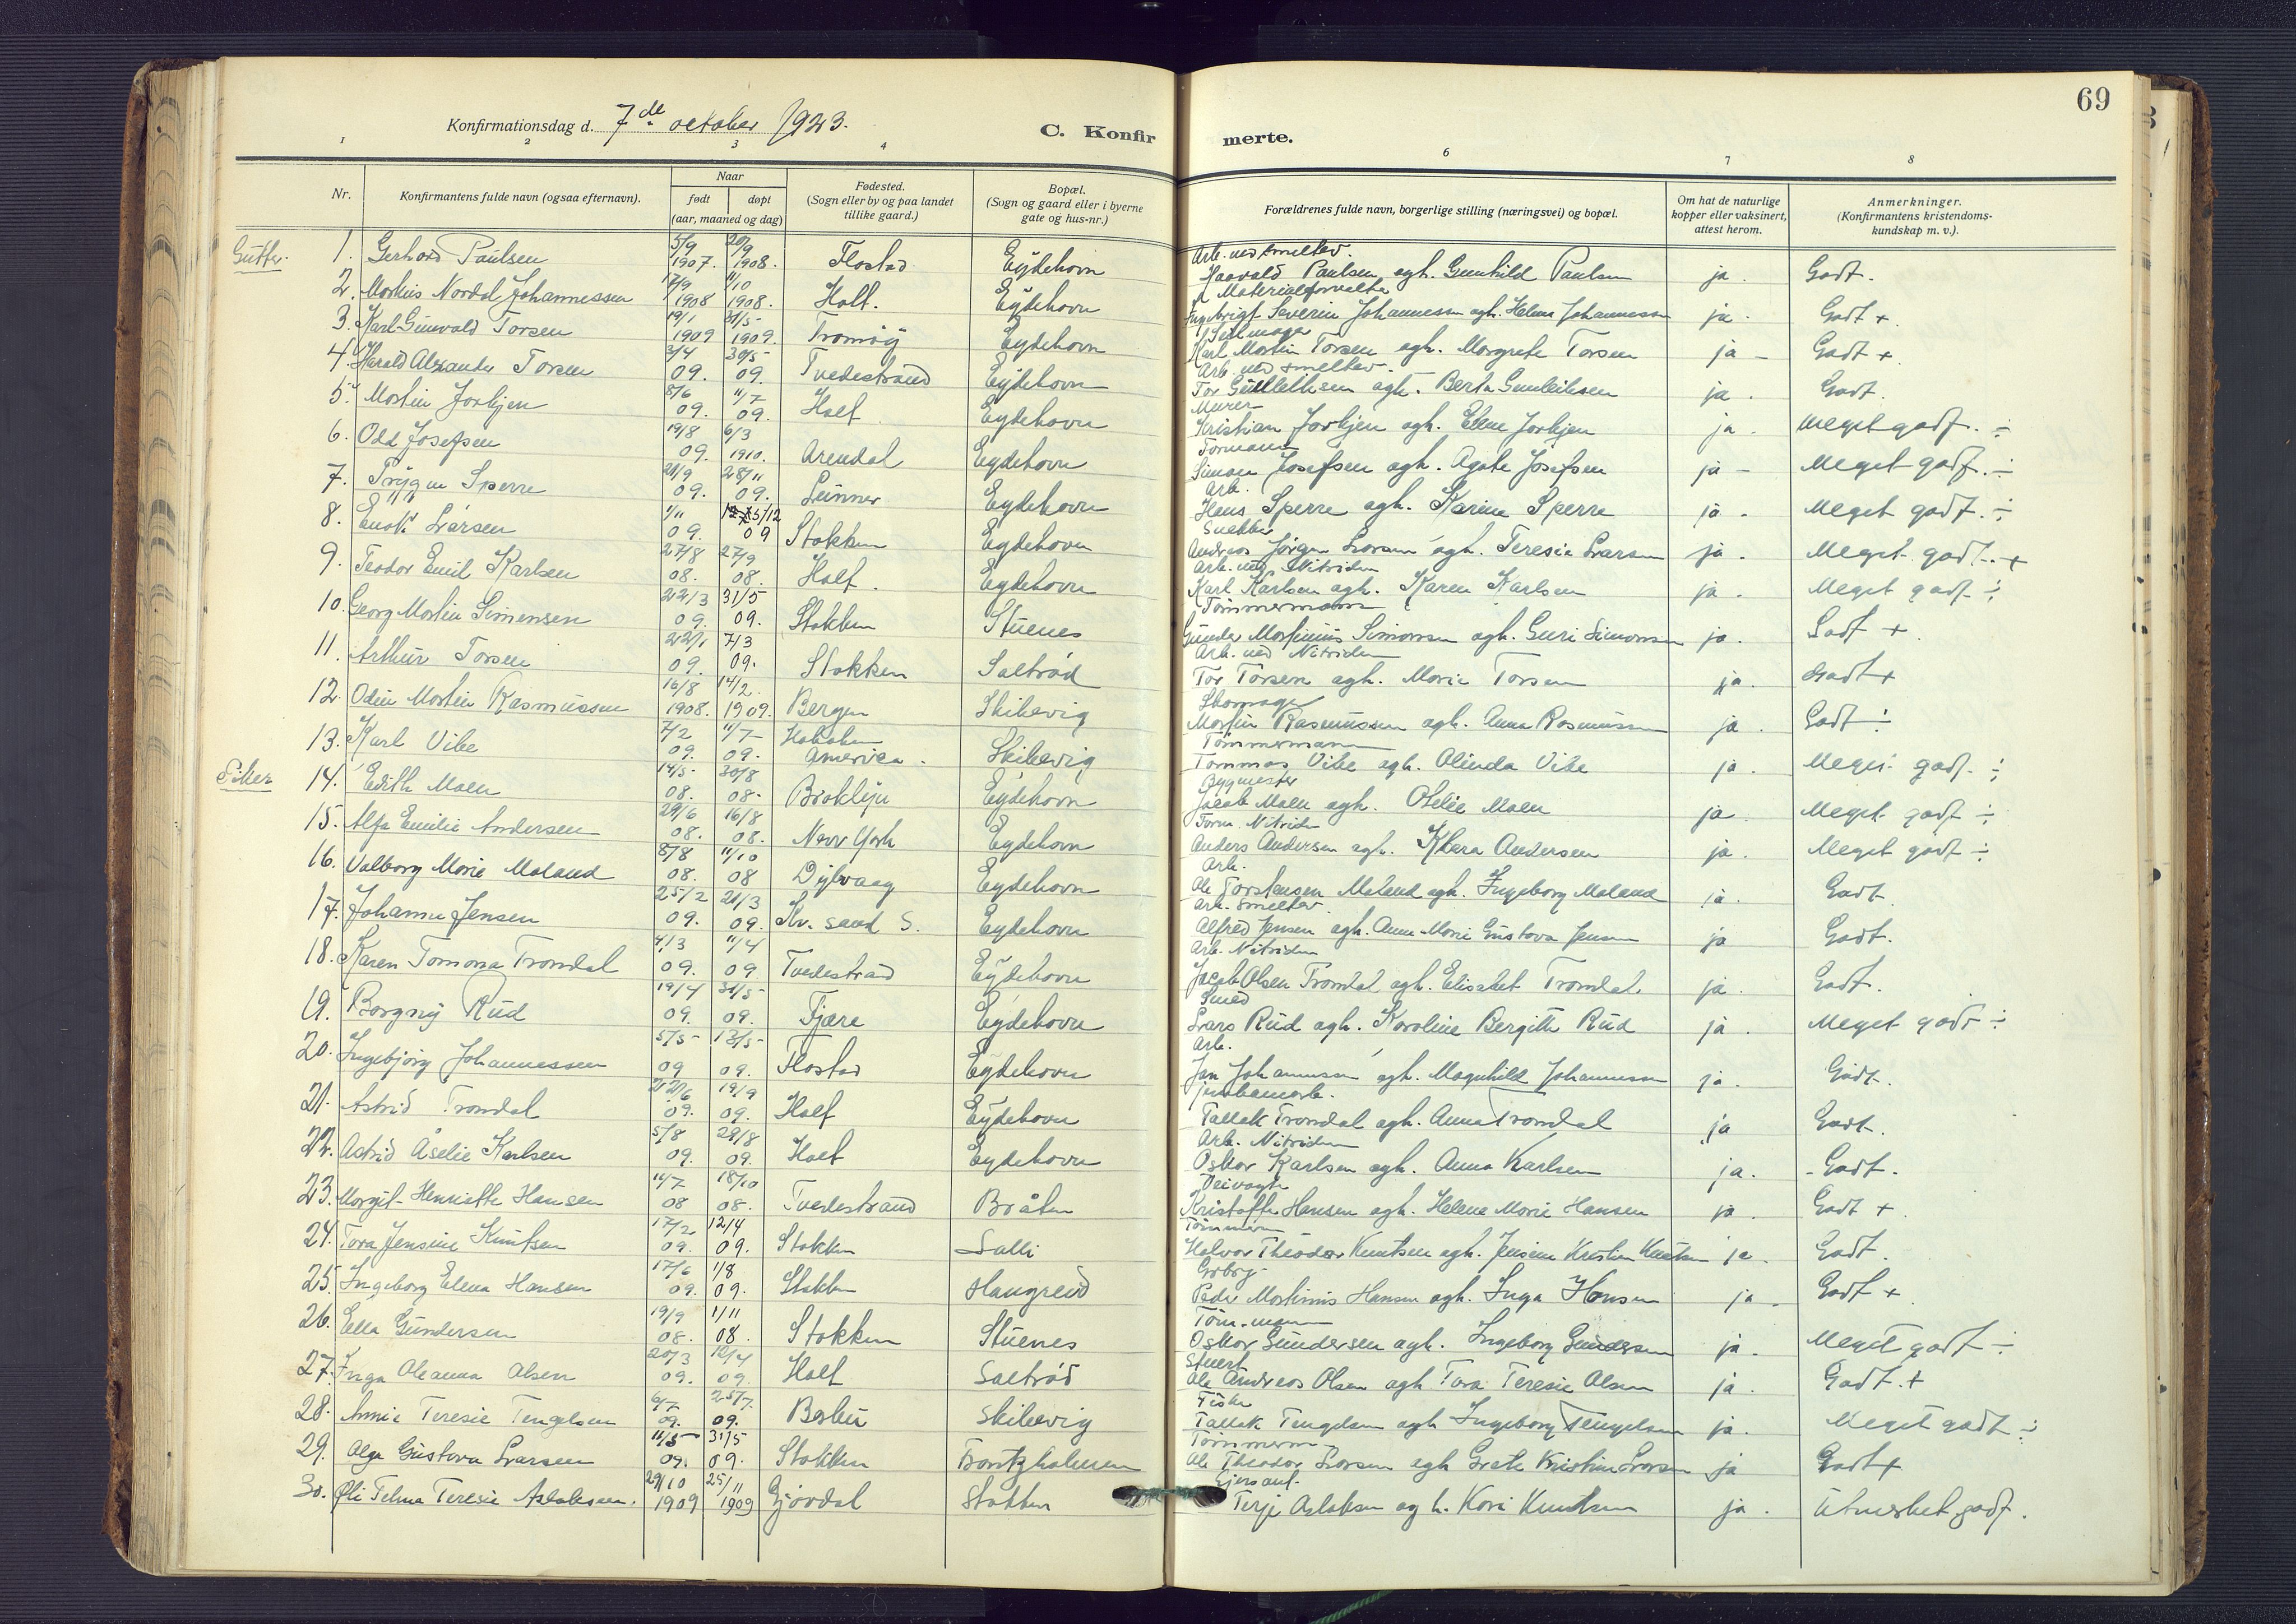 69
Konfirmationsdag d. 7de october 1923.
C. Konfir merte.
1 2 3 4 6 7 8
Nr.
Konfirmantens fulde navn (ogsaa efternavn).
Naar
født døpt
(aar, maaned og dag)
Fødested.
(Sogn eller by og paa landet
tillike gaard.)
Bopæl.
(Sogn og gaard eller i byerne
gate og hus-nr.)
Forældrenes fulde navn, borgerlige stilling (næringsvei) og bopæl.
Om hat de naturlige
kopper eller vaksinert,
attest herom.
Anmerkninger.
(Konfirmantens kristendoms-
kundskap m. v.).
Gutter.
1. Gerhard Paulsen 5/9 1907. 20/9 1908. Flostad Eydehavn Arb. ved smeltev. Haavald Paulsen ogh. Gunhild Paulsen ja. Godt.
2. Nordal Johannessen 17/9 1908 11/10 1908. Holt. Eydehavn Materialforvalter Severin Johannessen ogh. Helene Johannessen ja. Godt +
3. Karl Gunvald Torsen 19/1 1909 31/5 1909. Tromøy Eydehavn Seilmager Karl Martin Torsen ogh. Margrete Torsen ja - Godt +
4. Harald Alexander Torsen 3/4 09. 30/5 09. Tvedestrand Eydehavn Arb. ved smeltev. Tor ogh. Berta ja. Godt.
5. Martin 8/6 09. 11/7 09. Holt Eydehavn Murer Kristian ogh. Elene ja. Meget godt. ÷
6. Odd Josefsen 19/8 09. 6/3 1910. Arendal Eydehavn Formann Simon Josefsen ogh. Agate Josefsen ja - Meget godt. ÷
7. Trygve Sperre 21/9 09. 28/11 09. Lunner Eydehavn Arb. Hans Sperre ogh. Karine Sperre ja. Meget godt. ÷
8. Enok Larsen 1/11 09. 5/12 09 Stokken Eydehavn Snekker Andreas Jörgen Larsen ogh. Teresie Larsen ja. Meget godt. +
9. Teodor Emil Karlsen 27/8 08. 27/9 08. Holt. Eydehavn Arb. ved Nitriden Karl Karlsen ogh. Karen Karlsen ja. Meget godt ÷
10. Georg Martin Simensen 22/3 09. 31/5 09. Stokken Stuenes Tömmermann Gunder Martinius Simonsen ogh. Guri Simonsen ja. Godt +
11. Arthur Torsen 22/1 09. 7/3 09. Stokken Saltrød Arb. ved Nitriden Tor Torsen ogh. Marie Torsen ja. Godt +
12. Odin Martin Rasmussen 16/8 1908. 14/2 1909. Bergen Skibevig Skomager Martin Rasmussen ogh. Anna Rasmussen ja. Godt ÷
13. Karl Vibe 7/2 09. 11/7 09. Hoboken America. Skibevig Tömmermann Tommas Vibe ogh. Olinda Vibe ja. Meget godt. ÷
Piker
14. Edith Moen 14/5 08. 30/8 08. Broklyn Eydehavn Bygmester Jacob Moen ogh. Otelie Moen ja. Meget godt ÷
15. Alfa Emilie Andersen 29/6 08. 16/8 08. New York Eydehavn Form. Nitriden Anders Andersen ogh. Klara Andersen ja. Meget godt ÷
16. Valborg Marie Moland 8/8 08. 11/10 08 Dybvaag Eydehavn Arb. Ole Torstensen Moland ogh. Ingeborg Moland ja. Godt.
17. Johanne Jensen 25/2 09. 21/3 09. Kr. sand S. Eydehavn Arb. smeltev. Alfred Jensen ogh. Anne Marie Gustava Jensen ja Godt.
18. Karen Tomona Tromdal 4/3 09. 11/4 09 Tvedestrand Eydehavn Arb. Nitriden Jacob Olsen Tromdal ogh. Elisabet Tromdal. ja. Godt.
19. Borgny Rud 19/4 09. 31/5 09. Fjære Eydehavn Smed Lars Rud ogh. Karoline Bergitte Rud ja. Meget godt ÷
20. Ingebjörg Johannessen 5/5 09 13/5 09. Flostad Eydehavn Arb. Jan Johannessen ogh. Magnhild Johannessen ja. Godt.
21. Astrid Tromdal 22/6 09. 19/9 09. Holt Eydehavn Tallak Tromdal ogh. Anna Tromdal ja Godt.
22. Astrid Åselie Karlsen 5/8 09. 29/8 09. Holt Eydehavn Arb. Nitriden Oskar Karlsen ogh. Anna Karlsen ja. Godt.
23. Margit Henriette Hansen 14/7 08 18/10 08. Tvedestrand Bråten Veivogter Kristoffer Hansen ogh. Helene Marie Hansen ja. Godt +
24. Tora Jensine Knutsen 17/2 09. 12/4 09. Stokken Salli Tömmerm Halvor Theodor Knutsen ogh. Jensine Kristine Knutsen ja. Godt.
25. Ingeborg Elena Hansen 17/6 09. 1/8 09. Stokken Haugreid Peder Martinius Hansen ogh. Inga Hansen ja. Godt +
26. Ella Gundersen 19/9 08. 1/11 08. Stokken Stuenes Töm.mann Oskar Gundersen ogh. Ingeborg Gundersen ja. Meget godt ÷
27. Inga Oleanna Olsen 20/3 09. 12/4 09. Holt Saltrød Stuert Ole Andreas Olsen ogh Tora Teresie Olsen ja. Godt. +
28. Annie Teresie Tengelsen 6/7 09. 25/7 09. Barbu Skibevig Fisker Tallak Tengelsen ogh Ingeborg Tengelsen ja. Meget godt ÷
29. Olga Gustava Larsen 11/5 09. 31/5 09. Stokken Tömmerm Ole Theodor Larsen ogh Grete Kristine Larsen ja Godt +
30. Teresie Aslaksen. 29/10 1909 25/11 1909 Gjövdal Stokken Terje Aslaksen og h. Kari Knutsen ja. Utmerket godt.